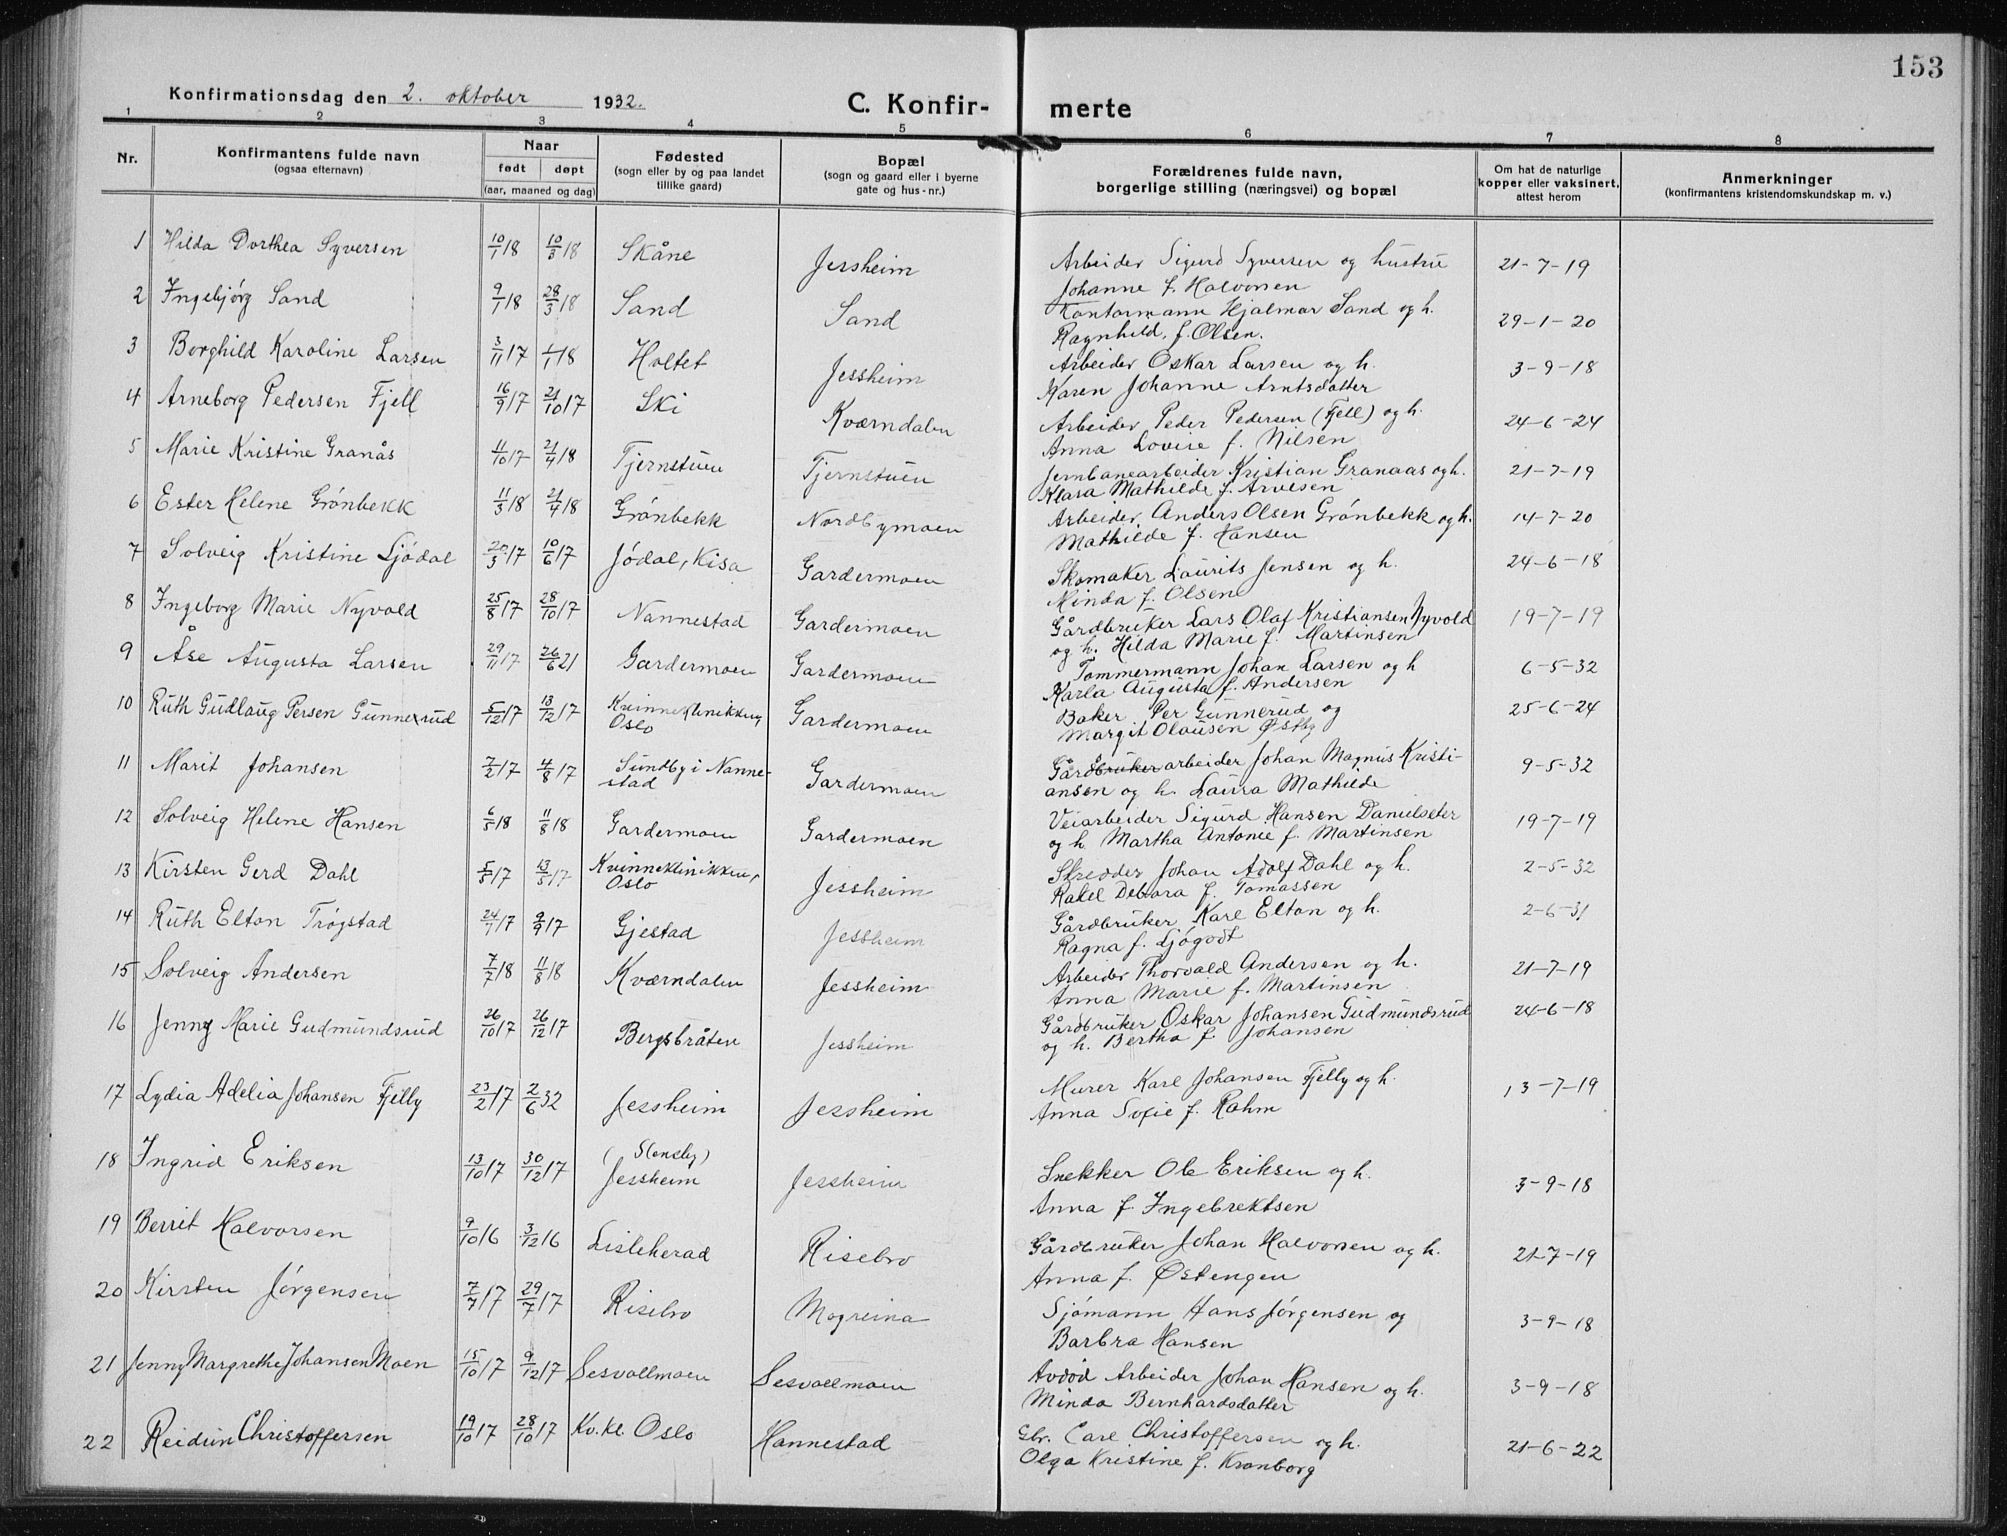 153
Konfirmationsdag den 2. oktober 1932.
C. Konfir- merte
1 2 3 4 5 6 7 8
Nr. Konfirmantens fulde navn (ogsaa efternavn) Naar født døpt (aar, maaned og dag) Fødested (sogn eller by og paa landet tillike gaard) Bopæl (sogn og gaard eller i byerne gate og hus-nr.) Forældrenes fulde navn, borgerlige stilling (næringsvei) og bopæl Om hat de naturlige kopper eller vaksinert, attest herom Anmerkninger (konfirmantens kristendomskundskap m. v.)
1 Hilda Dorthea Syversen 10/1 18 10/3 18 Skåne Jessheim Arbeider Sigurd Syversen og hustru 21-7-19
Johanne f. Halvorsen
2 Ingebjørg Sand 9/1 18 28/3 18 Sand Sand Kontormann Hjalmar Sand og h. 29-1-20
Ragnhild f. Olsen.
3 Borghild Karoline Larsen 3/11 17 1/1 18 Holtet Jessheim Arbeider Oskar Larsen og h. 3-9-18
Karen Johanne Arntsdatter
4 Arneborg Pedersen Fjell 16/9 17 21/10 17 Ski Kværndalen Arbeider Peder Pedersen (Fjell) og h. 24-6-24
Anna Lovise f. Nilsen
5 Marie Kristine Granås 11/10 17 21/4 18 Tjernstuen Tjernstuen Jernbanearbeider Kristian Granaas og h. 21-7-19
Klara Mathilde f. Arvesen
6 Ester Helene Grønbekk 11/3 18 21/4 18 Grønbekk Nordbymoen Arbeider Anders Olsen Grønbekk og h. 14-7-20
Mathilde f. Hansen
7 Solveig Kristine Ljødal 20/3 17 10/6 17 Jødal, Kisa Gardermoen Skomaker Laurits Jensen og h. 24-6-18
Minda f. Olsen
8 Ingeborg Marie Nyvold 25/8 17 28/10 17 Nannestad Gardermoen Gårdbruker Lars Olaf Kristiansen Nyvold 19-7-19
og h. Hilda Marie f. Martinsen
9 Åse Augusta Larsen 29/11 17 26/6 21 Gardermoen Gardermoen Tommermann Johan Larsen og h 6-5-32
Karla Augusta f. Andersen
10 Ruth Gudlaug Persen Gunnerud 5/12 17 13/12 17 Kvinneklinikken, Oslo Gardermoen Baker Per Gunnerud og 25-6-24
Margit Olausen Østby
11 Marit Johansen 7/2 17 4/8 17 Sundby i Nanne-stad Gardermoen Gårdbruker arbeider Johan Magnus Kristi- 9-5-32
ansen og h. Laura Mathilde
12 Solveig Helene Hansen 6/5 18 11/8 18 Gardermoen Gardermoen Veiarbeider Sigurd Hansen Danielseter 19-7-19
og h. Martha Antonie f. Martinsen
13 Kirsten Gerd Dahl 5/5 17 13/5 17 Kvinneklinikken, Oslo Jessheim Skredder Johan Adolf Dahl og h. 2-5-32
Rakel Debora f. Tomassen
14 Ruth Elton Trøgstad 24/7 17 9/9 17 Gjestad Jessheim Gårdbruker Karl Elton og h. 2-6-31
Ragna f. Ljøgodt
15 Solveig Andersen 7/2 18 11/8 18 Kværndalen Jessheim Arbeider Thorvald Andersen og h. 21-7-19
Anna Marie f. Martinsen
16 Jenny Marie Gudmundsrud 26/10 17 26/12 17 Bergsbråten Jessheim Gårdbruker Oskar Johansen Gudmundsrud 24-6-18
og h. Bertha f. Johansen
17 Lydia Adelia Johansen Fjelly 23/2 17 2/6 32 Jessheim Jessheim Murer Karl Johansen Fjelly og h. 13-7-19
Anna Sofie f. Rahm
18 Ingrid Eriksen 13/10 17 30/12 17 (Slensby) Jessheim Jessheim Snekker Ole Eriksen og h. 3-9-18
Anna f. Ingebrektsen
19 Berrit Halvorsen 9/10 16 3/12 16 Lisleherad Risebro Gårdbruker Johan Halvorsen og h. 21-7-19
Anna f. Østengen
20 Kirsten Jørgensen 7/7 17 29/7 17 Risebro Mogreina Sjømann Hans Jørgensen og 3-9-18
Barbra Hansen
21 Jenny Margrethe Johansen Moen 15/10 17 9/12 17 Sesvollmoen Sesvollmoen Avdød Arbeider Johan Hansen og h. 3-9-18
Minda Bernhardsdatter
22 Reidun Christoffersen 19/10 17 28/10 17 Kv.kl. Oslo Hannestad Gbr. Carl Christoffersen og h. 21-6-22
Olga Kristine f. Kronborg